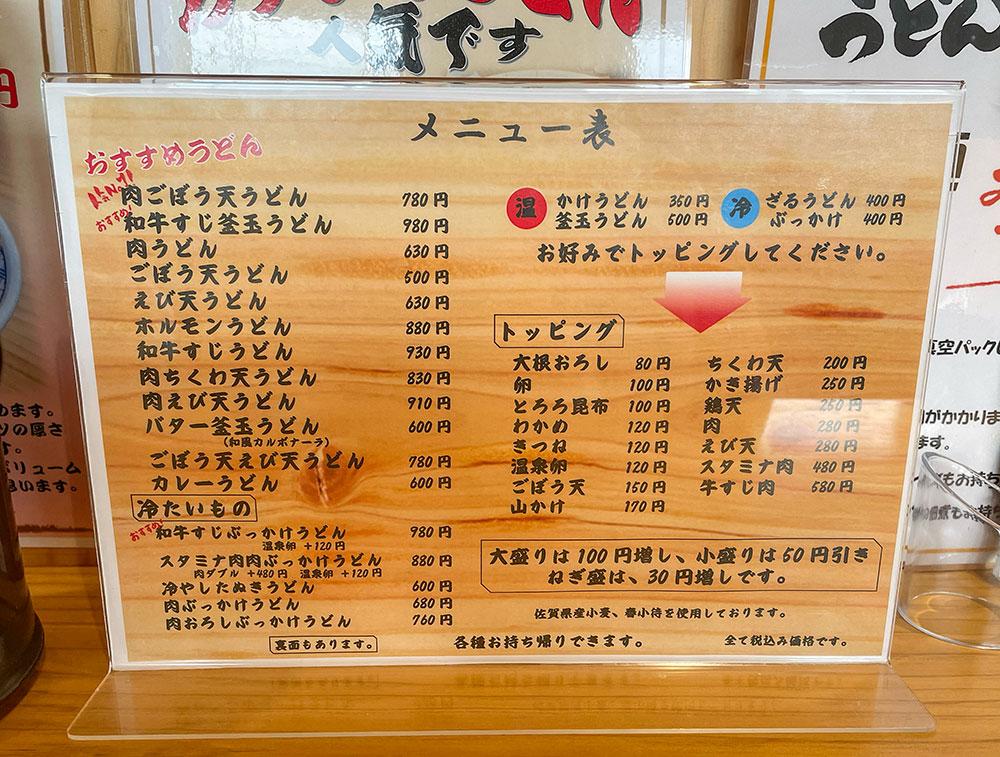 人気です
うどん
メニュー表
おすすめうどん
人気No.1
肉ごぼう天うどん 780円
おすすめ
和牛すじ釜玉うどん 980円
肉うどん 630円
ごぼう天うどん 500円
えび天うどん 630円
ホルモンうどん 880円
和牛すじうどん 930円
肉ちくわ天うどん 830円
肉えび天うどん 910円
バター釜玉うどん 600円
(和風カルボナーラ)
ごぼう天えび天うどん 780円
カレーうどん 600円
冷たいもの
おすすめ
和牛すじぶっかけうどん 980円
温泉卵 +120円
スタミナ肉肉ぶっかけうどん 880円
肉ダブル +480円 温泉卵 +120円
冷やしたぬきうどん 600円
肉ぶっかけうどん 680円
肉おろしぶっかけうどん 760円
裏面もあります。
温 かけうどん 350円
釜玉うどん 500円
冷 ざるうどん 400円
ぶっかけ 400円
お好みでトッピングしてください。
トッピング
大根おろし 80円
卵 100円
とろろ昆布 100円
わかめ 120円
きつね 120円
温泉卵 120円
ごぼう天 150円
山かけ 170円
ちくわ天 200円
かき揚げ 250円
鶏天 250円
肉 280円
えび天 280円
スタミナ肉 480円
牛すじ肉 580円
大盛りは100円増し、小盛りは50円引き
ねぎ盛は、30円増しです。
佐賀県産小麦、春小待を使用しております。
各種お持ち帰りできます。
全て税込み価格です。
円
めます。
ツの厚さ
す。
ボリューム
思います。
真空パック
がかかりま
ます。
もお持ち